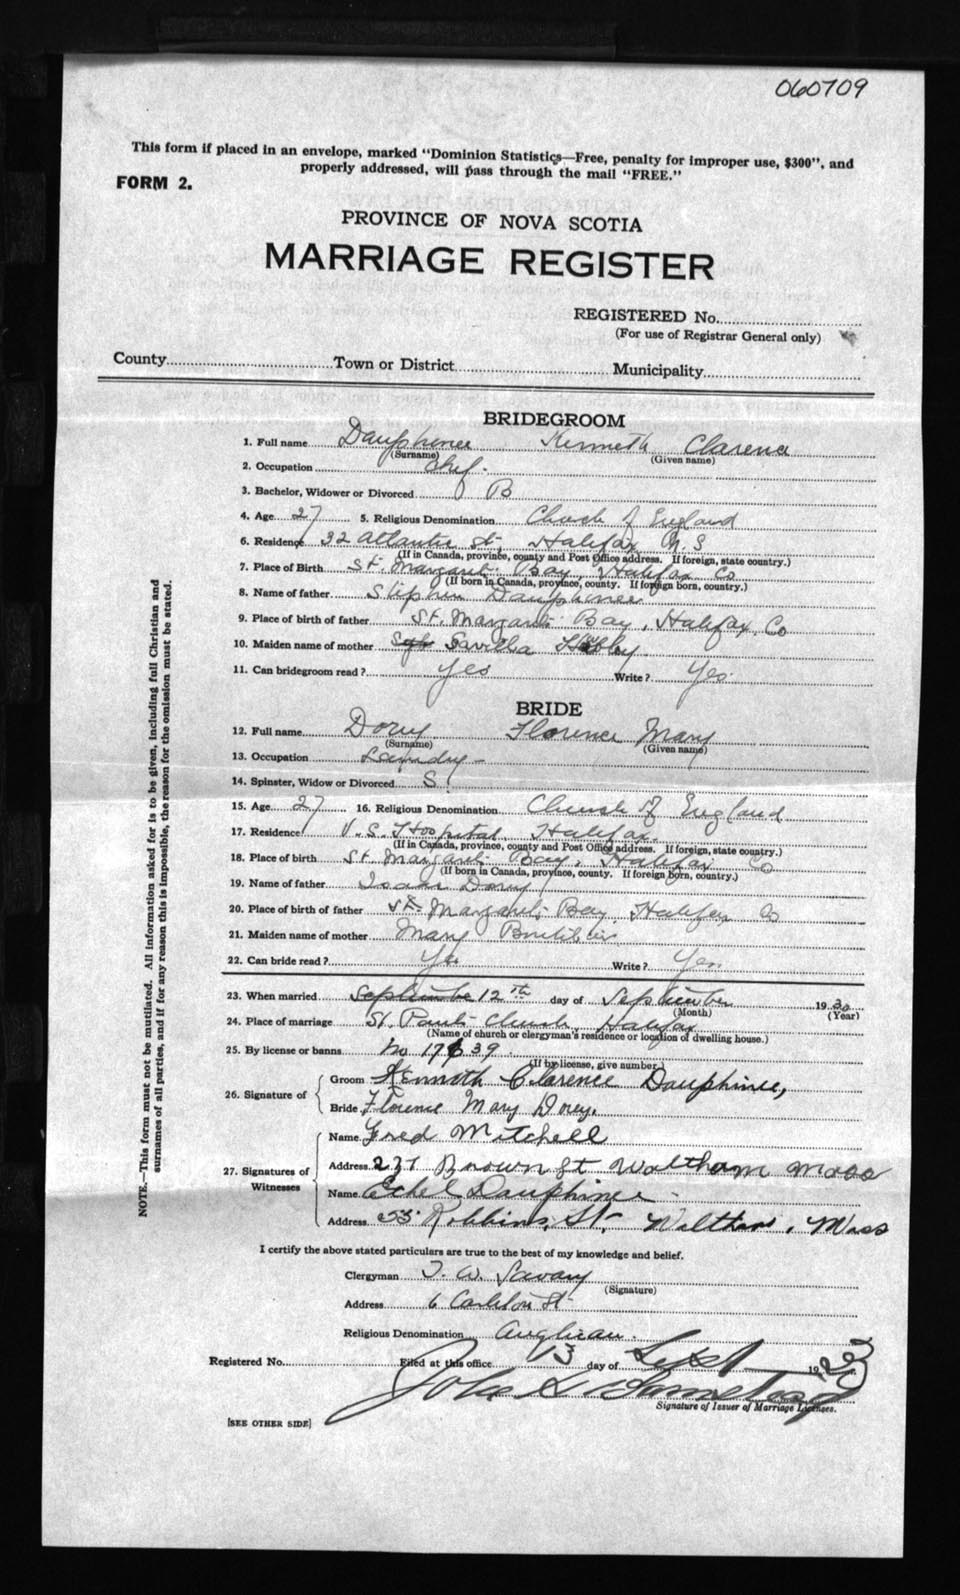 060709
This form if placed in an envelope, marked "Dominion Statistics—Free, penalty for improper use, $300", and
properly addressed, will pass through the mail "FREE."
FORM 2.
PROVINCE OF NOVA SCOTIA
MARRIAGE REGISTER
REGISTERED No.
(For use of Registrar General only)
County Town or District Municipality
BRIDEGROOM
1. Full name Dauphinee Kenneth Clarence
(Surname) (Given name)
2. Occupation Chef.
3. Bachelor, Widower or Divorced B
4. Age 27 5. Religious Denomination Church of England
6. Residence 32 Atlantic St, Halifax N.S
(If in Canada, province, county and Post Office address. If foreign, state country.)
7. Place of Birth St. Margarets Bay, Halifax Co
(If born in Canada, province, county. If foreign born, country.)
8. Name of father Stephen Dauphinee
9. Place of birth of father St. Margarets Bay, Halifax Co
10. Maiden name of mother Savilla Hubley
11. Can bridegroom read? Yes Write? Yes.
BRIDE
12. Full name Dorey Florence Mary
(Surname) (Given name)
13. Occupation Laundry -
14. Spinster, Widow or Divorced S
15. Age 27 16. Religious Denomination Church of England
17. Residence V.S. Hospital, Halifax.
(If in Canada, province, county and Post Office address. If foreign, state country.)
18. Place of birth St. Margarets Bay, Halifax Co
(If born in Canada, province, county. If foreign born, country.)
19. Name of father Isaac Dorey
20. Place of birth of father St. Margarets Bay Halifax Co
21. Maiden name of mother Mary Boutilier
22. Can bride read? Yes Write? Yes
23. When married September 12th day of September 1930
(Month) (Year)
24. Place of marriage St. Pauls Church, Halifax
(Name of church or clergyman's residence or location of dwelling house.)
25. By license or banns No 17639.
(If by license, give number.)
26. Signature of Groom Kenneth Clarence Dauphinee,
Bride Florence Mary Dorey.
27. Signatures of Witnesses
Name Fred Mitchell
Address 237 Brown St Waltham Mass
Name Ethel Dauphinee -
Address 53 Robbins, St- Waltham, Mass
I certify the above stated particulars are true to the best of my knowledge and belief.
Clergyman T. W. Savary
(Signature)
Address 6 Carleton St
Religious Denomination Anglican.
Registered No. Filed at this office 13 day of Sept 19
Signature of Issuer of Marriage Licenses.
[SEE OTHER SIDE]
NOTE.—This form must not be mutilated. All information asked for is to be given, including full Christian and
surnames of all parties, and if for any reason this is impossible, the reason for the omission must be stated.